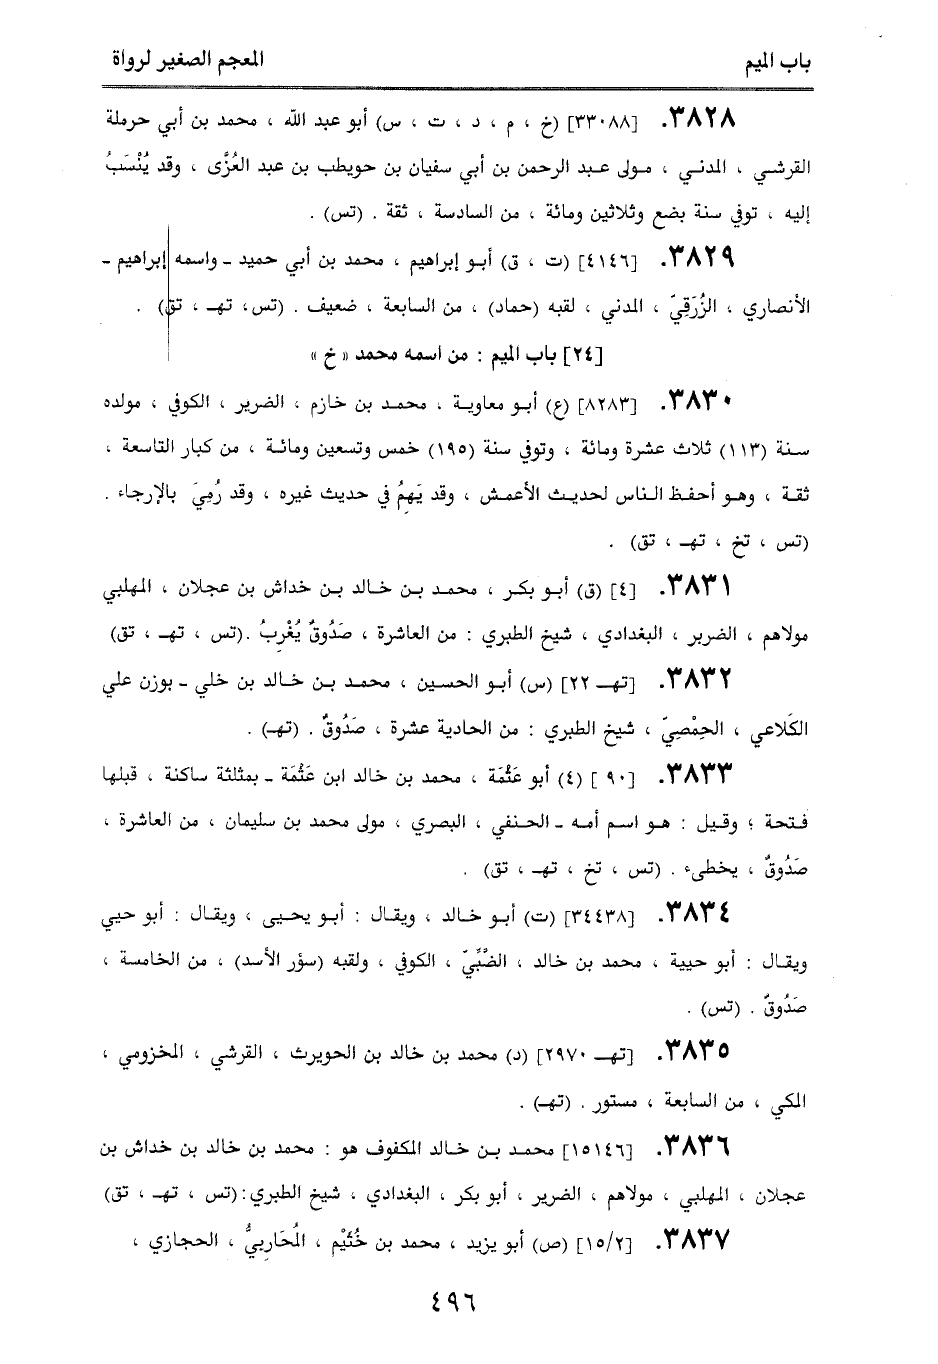 باب الميم
المعجم الصغير لرواة
٣٨٢٨. [٣٣٠٨٨] (خ ، م ، د ، ت ، س) أبو عبد الله ، محمد بن أبي حرملة
القرشي ، المدني ، مولى عبد الرحمن بن أبي سفيان بن حويطب بن عبد العُزَّى ، وقد يُنْسَبُ
إليه ، توفي سنة بضع وثلاثين ومائة ، من السادسة ، ثقة . (تس) .
٣٨٢٩. [٤١٤٦] (ت ، ق) أبو إبراهيم ، محمد بن أبي حميد ـ واسمه إبراهيم ـ
الأنصاري ، الزُرَقِيّ ، المدني ، لقبه (حماد) ، من السابعة ، ضعيف . (تس، تهـ ، تق) .
[٢٤] باب الميم : من اسمه محمد « خ »
٣٨٣٠. [٨٢٨٣] (ع) أبو معاوية ، محمد بن خازم ، الضرير ، الكوفي ، مولده
سنة (١١٣) ثلاث عشرة ومائة ، وتوفي سنة (١٩٥) خمس وتسعين ومائة ، من كبار التاسعة ،
ثقة ، وهو أحفظ الناس لحديث الأعمش ، وقد يَهِمُ في حديث غيره ، وقد رُمِيَ بالإرجاء .
(تس ، تخ ، تهـ ، تق) .
٣٨٣١. [٤] (ق) أبو بكر ، محمد بن خالد بن خداش بن عجلان ، المهلبي
مولاهم ، الضرير ، البغدادي ، شيخ الطبري : من العاشرة ، صَدُوقٌ يُغْرِبُ .(تس ، تهـ ، تق)
٣٨٣٢. [تهـ ٢٢] (س) أبو الحسين ، محمد بن خالد بن خلي ـ بوزن علي
الكَلاعي ، الحِمْصِيّ ، شيخ الطبري : من الحادية عشرة ، صَدُوقٌ . (تهـ) .
٣٨٣٣. [٩٠ ] (٤) أبو عَثْمَة ، محمد بن خالد ابن عَثْمَة ـ بمثلثة ساكنة ، قبلها
فتحة ؛ وقيل : هو اسم أمه ـ الحنفي ، البصري ، مولى محمد بن سليمان ، من العاشرة ،
صَدُوقٌ ، يخطىء . (تس ، تخ ، تهـ ، تق) .
٣٨٣٤. [٣٤٤٣٨] (ت) أبو خالد ، ويقال : أبو يحيى ، ويقال : أبو حيي
ويقال : أبو حيية ، محمد بن خالد ، الضَّبِّيّ ، الكوفي ، ولقبه (سؤر الأسد) ، من الخامسة ،
صَدُوقٌ . (تس) .
٣٨٣٥. [تهـ ٢٩٧٠] (د) محمد بن خالد بن الحويرث ، القرشي ، المخزومي ،
المكي ، من السابعة ، مستور . (تهـ) .
٣٨٣٦. [١٥١٤٦] محمد بن خالد المكفوف هو : محمد بن خالد بن خداش بن
عجلان ، المهلبي ، مولاهم ، الضرير ، أبو بكر ، البغدادي ، شيخ الطبري:(تس ، تهـ ، تق)
٣٨٣٧. [١٥/٢] (ص) أبو يزيد ، محمد بن خُثَيْم ، المُحَارِبيُّ ، الحجازي ،
٤٩٦